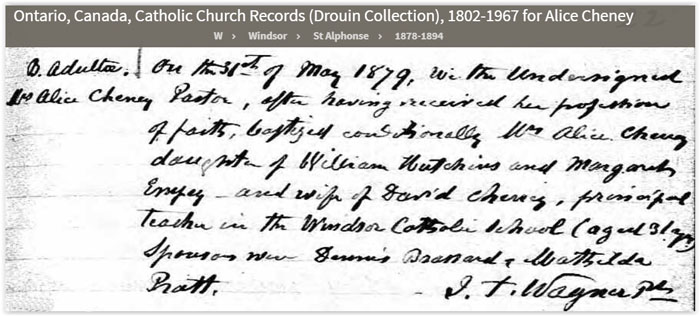 Ontario, Canada, Catholic Church Records (Drouin Collection), 1802-1967 for Alice Cheney
W > Windsor > St Alphonse > 1878-1894
B. Adultæ. On the 31st of May 1879, We the Undersigned
Mrs Alice Cheney Pastor, after having received her profession
of faith, baptized conditionally Mrs Alice Cheney
daughter of William Hutchins and Margaret
Empey - and wife of David Cheney, principal
teacher in the Windsor Catholic School (aged 31 yrs)
Sponsors were Dennis Brossard & Mathilda
Pratt. J. T. Wagner